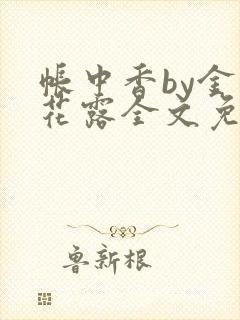 帐中香by金
花露全文免
鲁新根